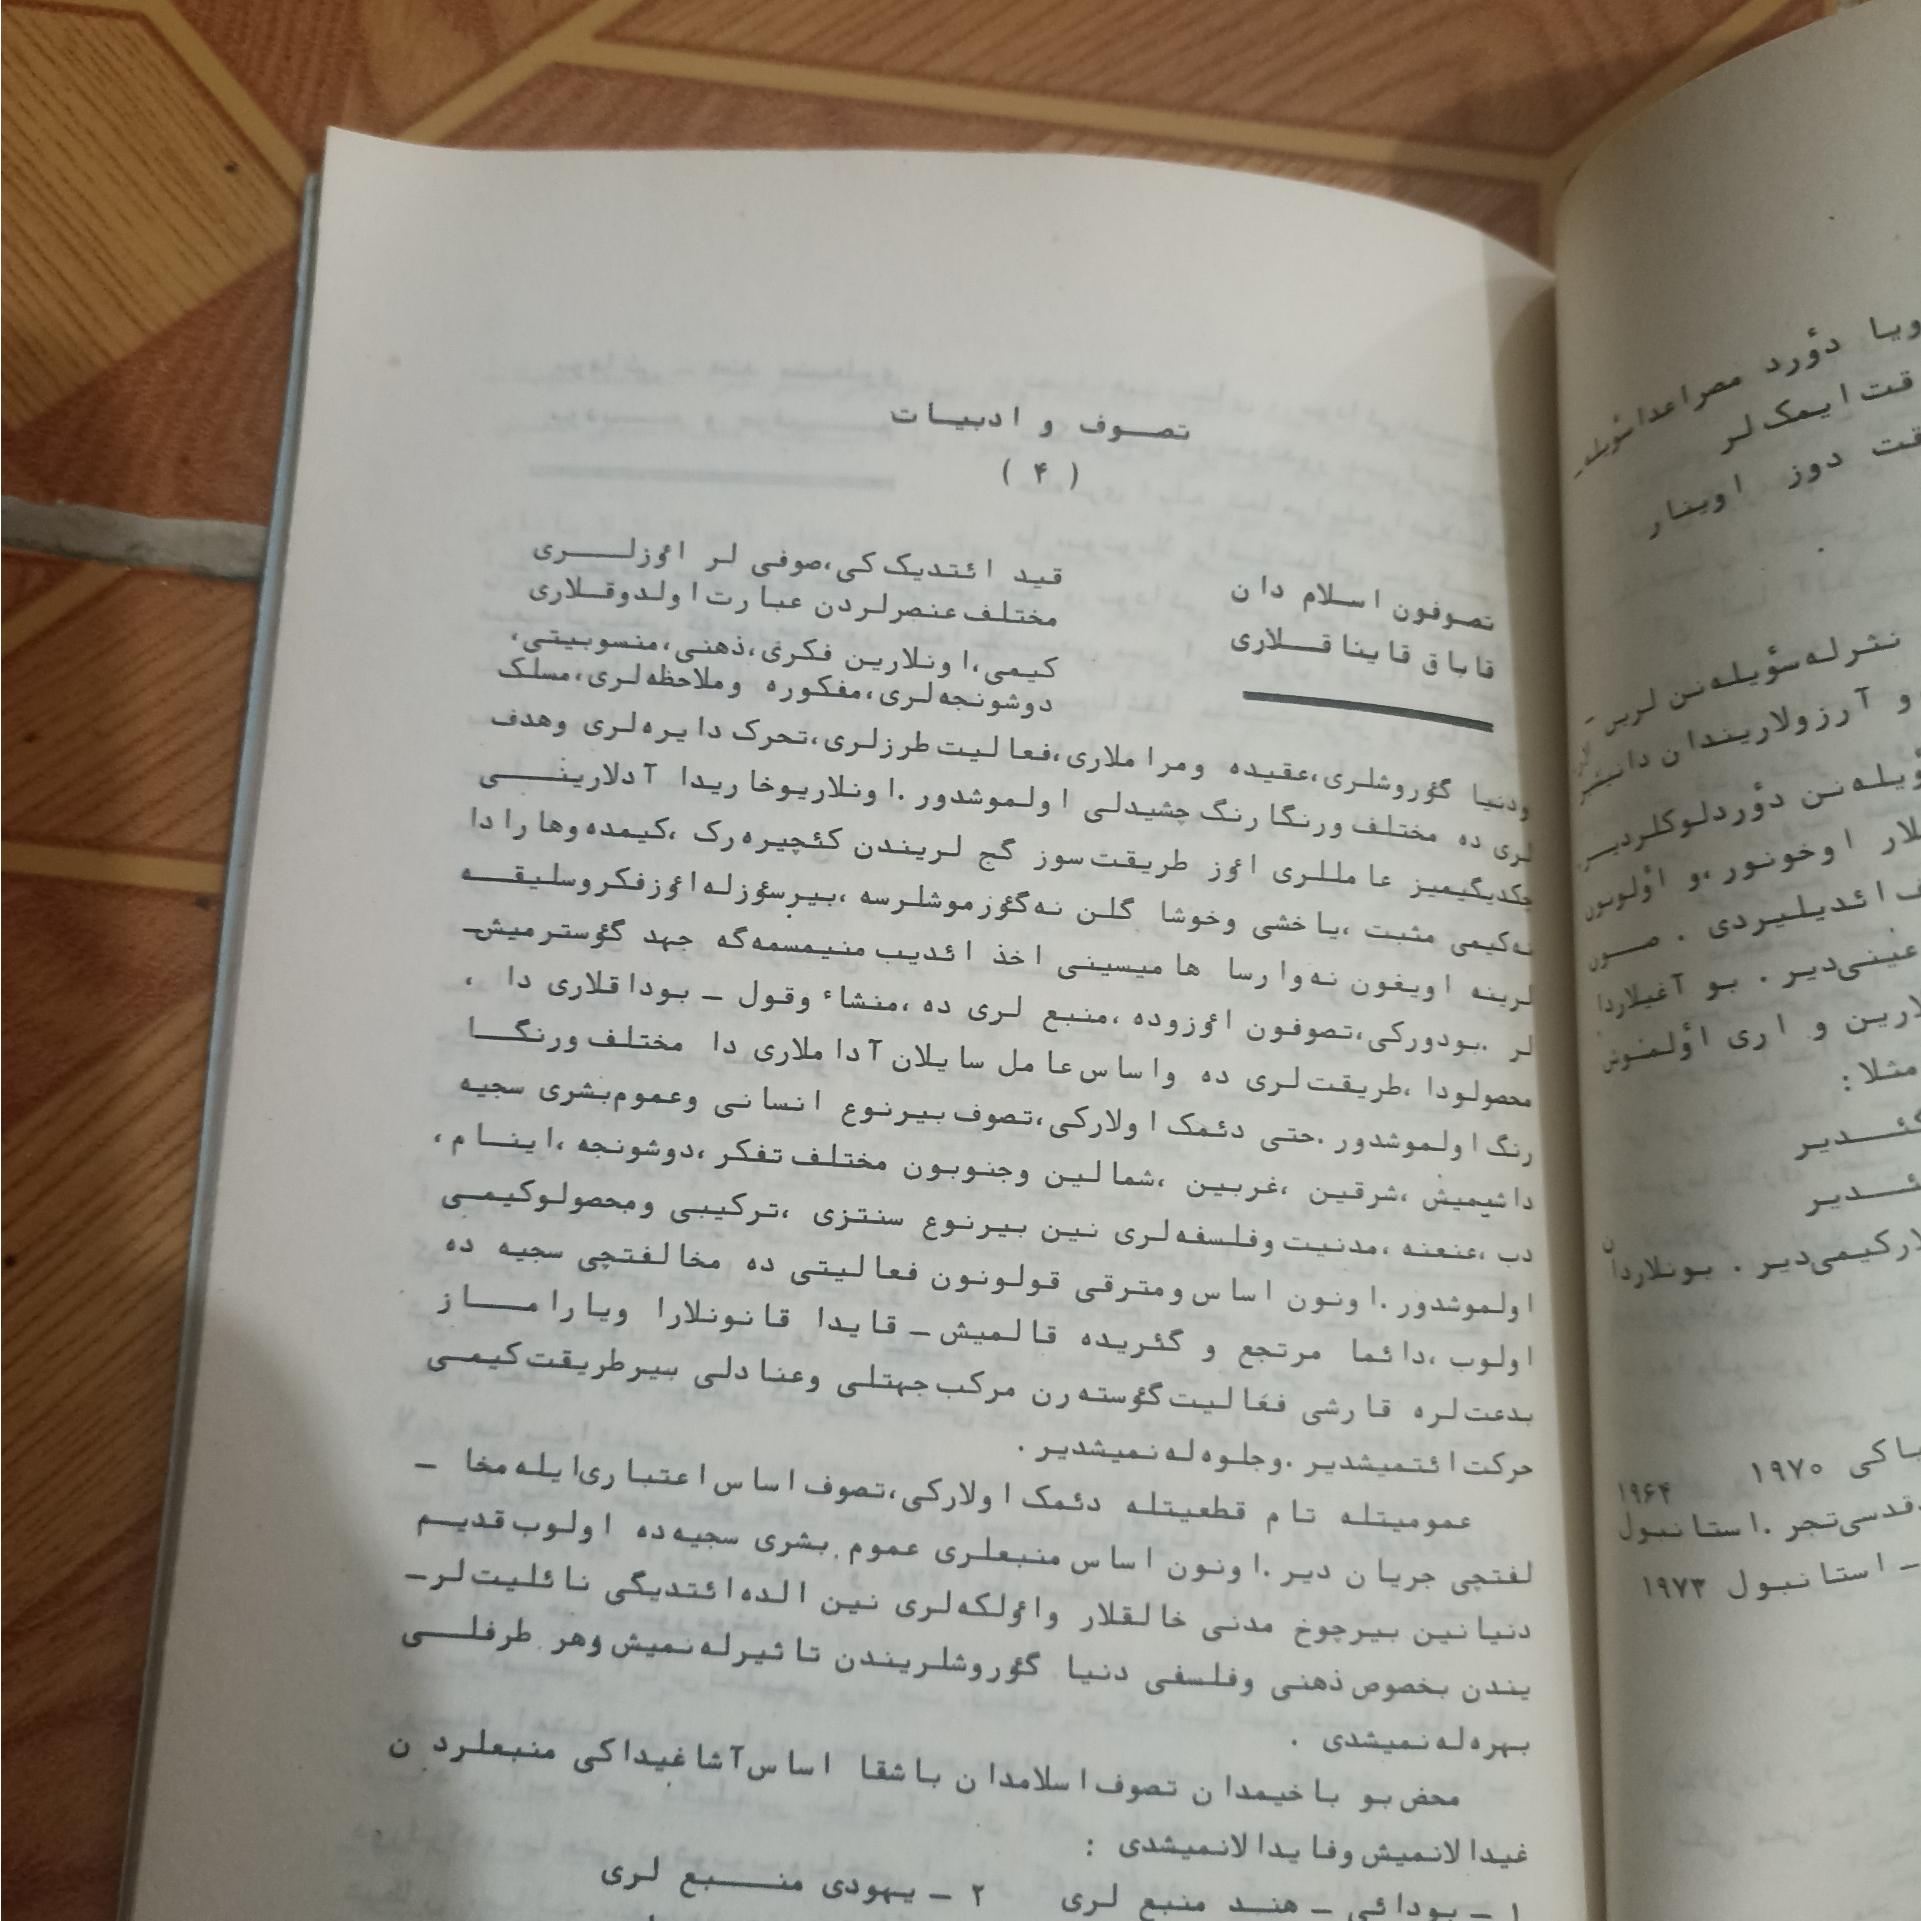 تصوف و ادبیات
( ۴ )
تصوفون اسلام دان
قاباق قایناقلاری
قید ائتدیک کی،صوفی لر اؤزلری
مختلف عنصرلردن عبارت اولدوقلاری
کیمی،اونلارین فکری،ذهنی،منسوبیتی،
دوشونجه‌لری،مفکوره وملاحظه‌لری،مسلک
ودنیا گؤروشلری،عقیده ومراملاری،فعالیت طرزلری،تحرک دایره‌لری وهدف
لری ده مختلف ورنگارنگ چشیدلی اولموشدور .اونلاریوخاریدا آدلارینی
چکدیگیمیز عامللری اؤز طریقت‌سوز گج لریندن کئچیره‌رک ،کیمده‌وهارا دا
نه‌کیمی مثبت ،یاخشی وخوشا گلن نه‌گؤزموشلرسه ،بیرسؤزله‌اؤزفکروسلیقه
لرینه اویغون نه‌وارسا هامیسینی اخذ ائدیب منیمسمه‌گه جهد گؤسترمیش‌ـ
لر .بودورکی،تصوفون اؤزوده ،منبع لری ده ،منشاء وقول ـ بوداقلاری دا ،
محصولودا ،طریقت‌لری ده واساس‌عامل سایلان آداملاری دا مختلف ورنگا
رنگ اولموشدور .حتی دئمک اولارکی،تصوف بیرنوع انسانی وعموم‌بشری سجیه
داشیمیش ،شرقین ،غربین ،شمالین وجنوبون مختلف تفکر ،دوشونجه ،اینام،
دب ،عنعنه ،مدنیت وفلسفه‌لری نین بیرنوع سنتزی ،ترکیبی ومحصولوکیمی
اولموشدور .اونون اساس‌ومترقی قولونون فعالیتی ده مخالفتچی سجیه ده
اولوب ،دائما مرتجع و گئریده قالمیش ـ قایدا قانونلارا ویاراماز
بدعت‌لره قارشی فعالیت‌گؤسته‌رن مرکب‌جهتلی وعنادلی بیرطریقت‌کیمی
حرکت‌ائتمیشدیر .وجلوه‌له‌نمیشدیر .
عمومیتله تام قطعیتله دئمک اولارکی،تصوف‌اساس‌اعتباری‌ایله‌مخا ـ
لفتچی جریان دیر .اونون اساس‌منبعلری عموم بشری سجیه‌ده اولوب‌قدیم
دنیانین بیرچوخ مدنی خالقلار واؤلکه‌لری نین الده‌ائتدیگی نائلیت‌لرـ
یندن بخصوص‌ذهنی وفلسفی دنیا گؤروشلریندن تاثیرله‌نمیش‌وهر طرفلی
بهره‌له‌نمیشدی .
محض‌بو باخیمدان تصوف‌اسلامدان باشقا اساس‌آشاغیداکی منبعلردن
غیدالانمیش‌وفایدالانمیشدی :
۱ ـ بودائی ـ هند منبع لری ۲ ـ یهودی منبع لری
ویا دؤرد مصراعدا
قت ایمک‌لر
قت دوز اوینار
نثرله‌سؤیله‌نن
و آرزولاریندان
ؤیله‌نن دؤردلوکلردیر
لار اوخونور،و اؤلونون
ائدیلیردی . صون
عینی‌دیر . بو آغیلاردا
لارین و اری اؤلموش
مثلا :
ئدیر
ئدیر
لارکیمی‌دیر . بونلاردان
باکی ۱۹۷۰ ۱۹۶۴
قدسی‌تجر .استانبول
ـ استانبول ۱۹۷۳